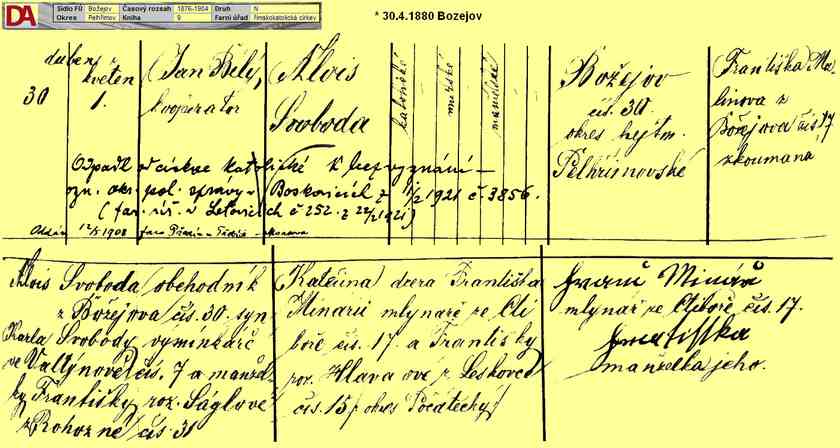 DA
Sídlo FÚ Božejov Časový rozsah 1876-1904 Druh N
Okres Pelhřimov Kniha 9 Farní úřad římskokatolická církev
* 30.4.1880 Bozejov
duben
30
květen
1.
Jan Bílý,
kooperator
Alois
Svoboda
katolické
mužské
manželské
Božejov
čís. 30
okres hejtm.
Pelhřimovské
Františka Ma-
linova z
Božejova čís 17
zkoumaná
Odpadl od církve katolické k bezvyznání –
ozn. okr. pol. správy v Boskovicích z 11/2 1921 č 3856.
(far. úř. v Letovicích č 252. z 22/2 1921)
12/5 1908
Alois Svoboda obchodník
z Božejova čís. 30. syn
Karla Svobody výminkáře
ve Valtýnově čís. 7 a manžel-
ky Františky roz. Ságlové
z Rohozné čís 31
Kateřina dcera Františka
Mináře mlynáře ze Cti-
boře čís. 17. a Františky
roz. Hlava ové z Leskovce
čís. 15 okres Počátecky
Minář
mlynář ze Ctiboře čís. 17.
Františka
manželka jeho.